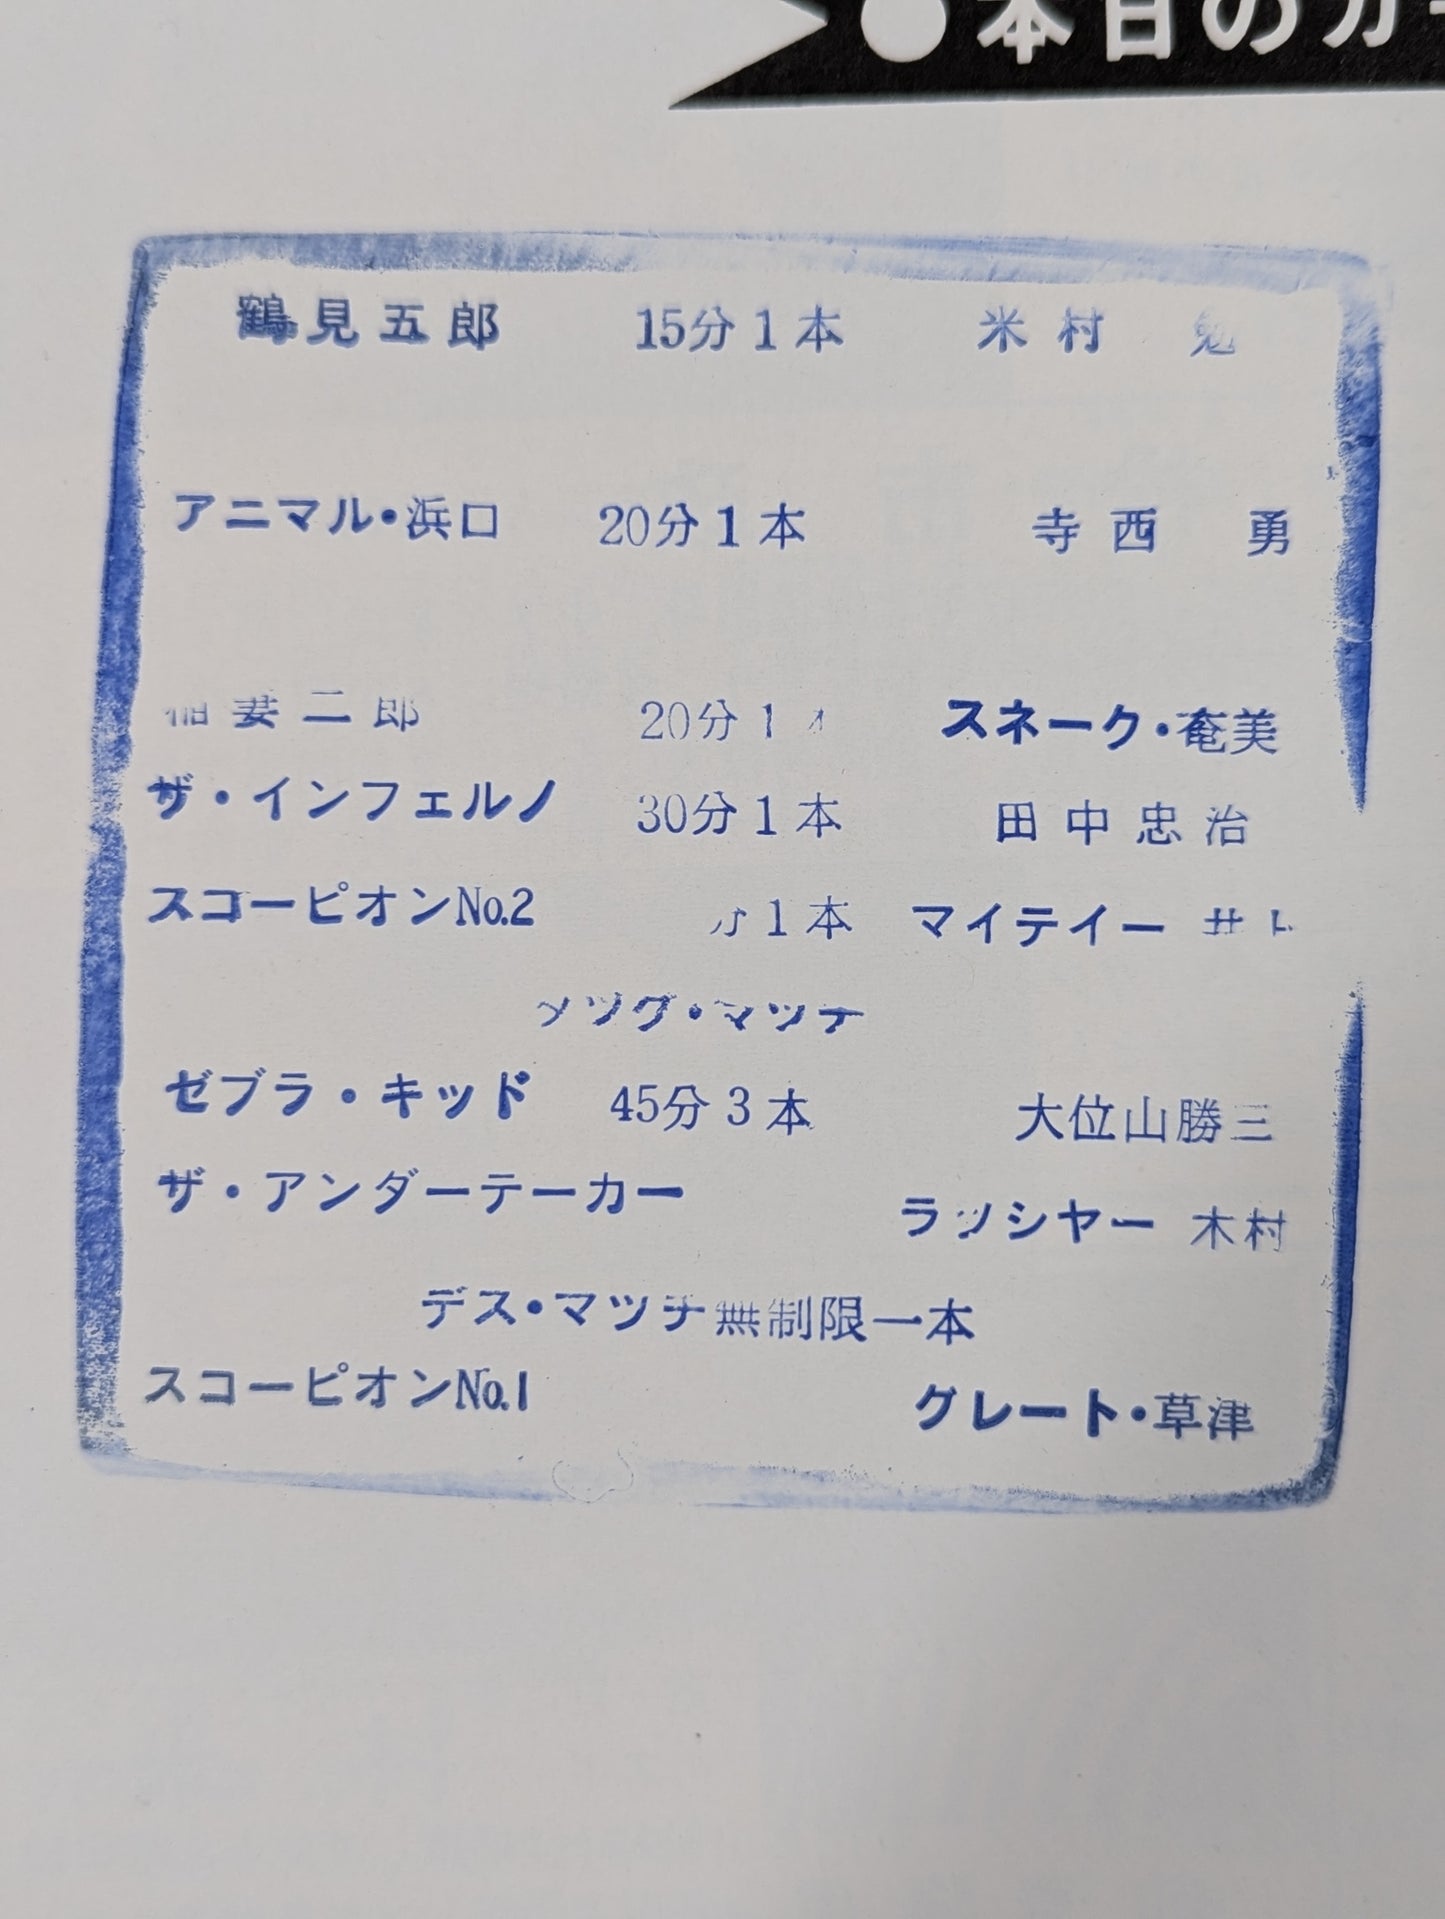 ●本日のカ
鶴見五郎 15分1本 米村 勉
アニマル・浜口 20分1本 寺西 勇
稲妻二郎 20分1 スネーク・奄美
ザ・インフェルノ 30分1本 田中忠治
スコーピオンNo.2 分1本 マイテイー
マツチ
ゼブラ・キッド 45分3本 大位山勝三
ザ・アンダーテーカー ラッシヤー 木村
デス・マツチ無制限一本
スコーピオンNo.1 グレート・草津